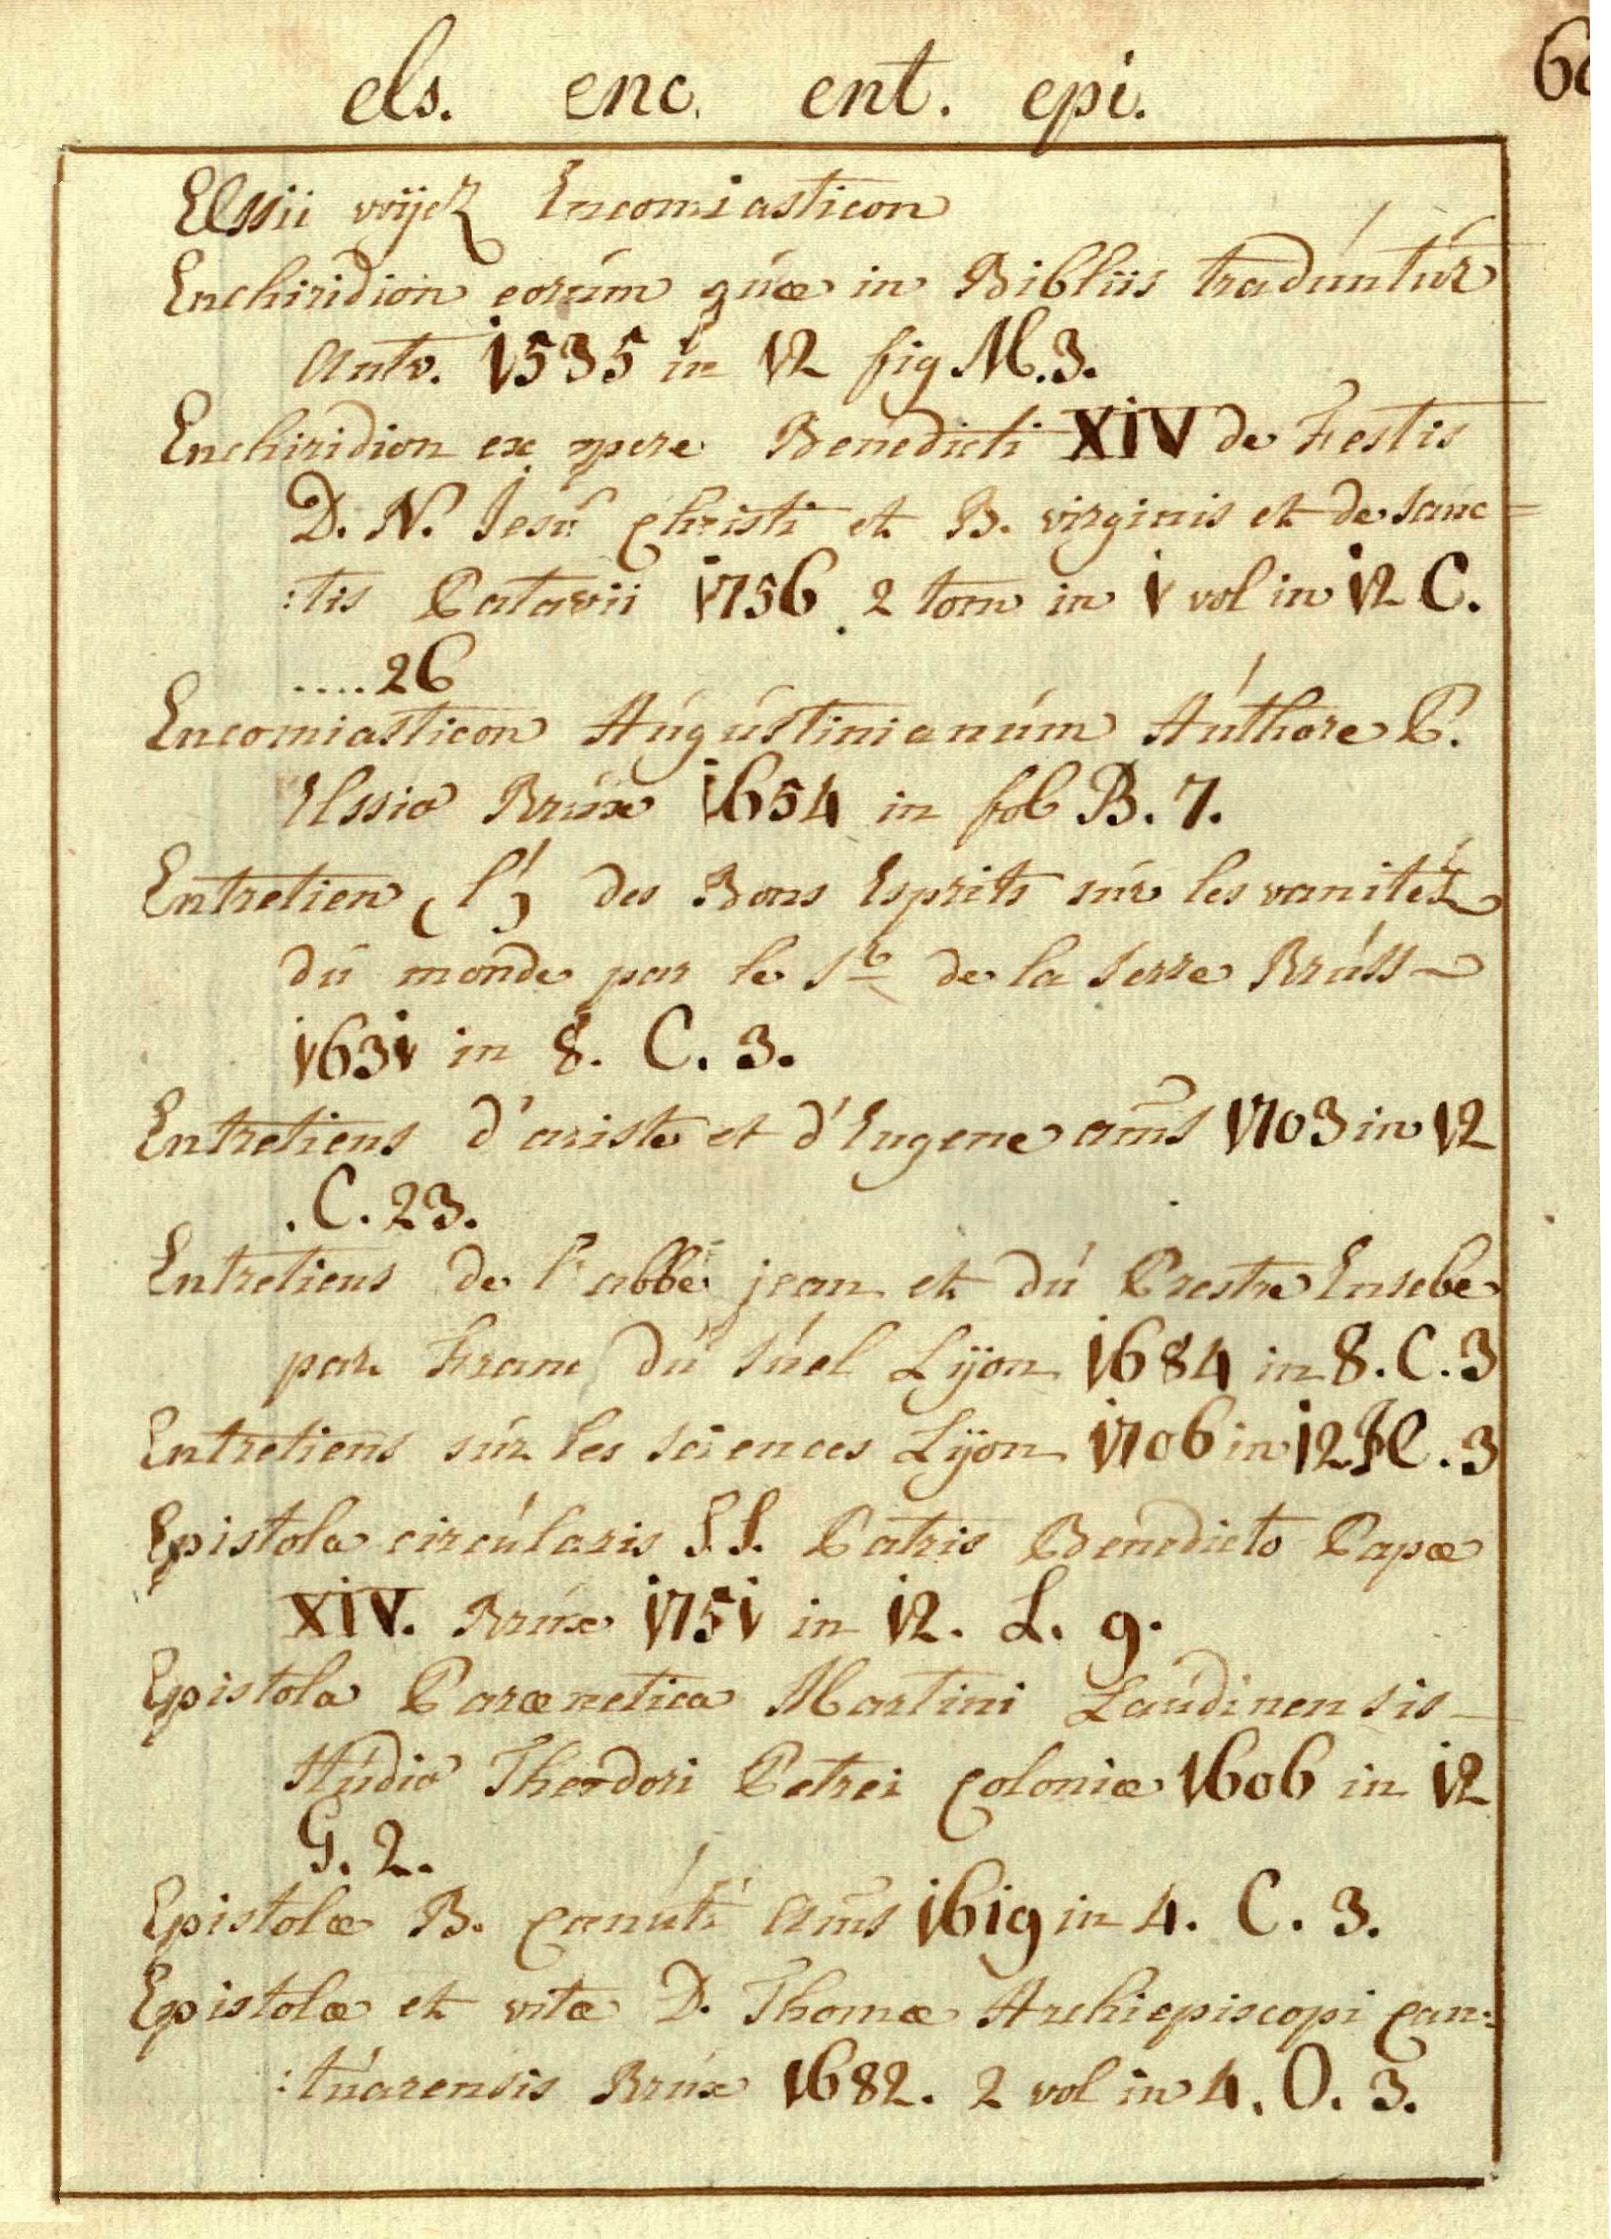 els. enc. ent. epi.
Elssii voijez Encomiasticon
Enchiridion eorum quæ in Bibliis traduntur
Antv. 1535 in 12 fig M.3.
Enchiridion ex opere Benedicti XIV de Festis
D. N. Jesu Christi et B. virginis et de sanc=
:tis Patavii 1756 2 tom in 1 vol in 12 C.
....26
Encomiasticon Augustinianum Authore P.
Elssio Brux 1654 in fol B. 7.
Entretien (l') des Bons Esprits sur les vanitéz
du monde par le Sr de la Serre Bruss
1631 in 8. C. 3.
Entretiens d'ariste et d'Eugene ams 1703 in 12
.C. 23.
Entretiens de l'abbé jean et du Prestre Eusebe
par Franc du Suel Lyon 1684 in 8. C. 3
Entretiens sur les sciences Lyon 1706 in 12 C. 3
Epistola circularis S.S. Patris Benedicto Papæ
XIV. Brux 1751 in 12. L. 9.
Epistola Parænetica Martini Laudinensis
studio Theodori Petrei Coloniæ 1606 in 12
G. 2.
Epistolæ B. Canuti Ams 1619 in 4. C. 3.
Epistolæ et vita D. Thomæ Archiepiscopi Can:
:tuarensis Brux 1682. 2 vol in 4. O. 3.